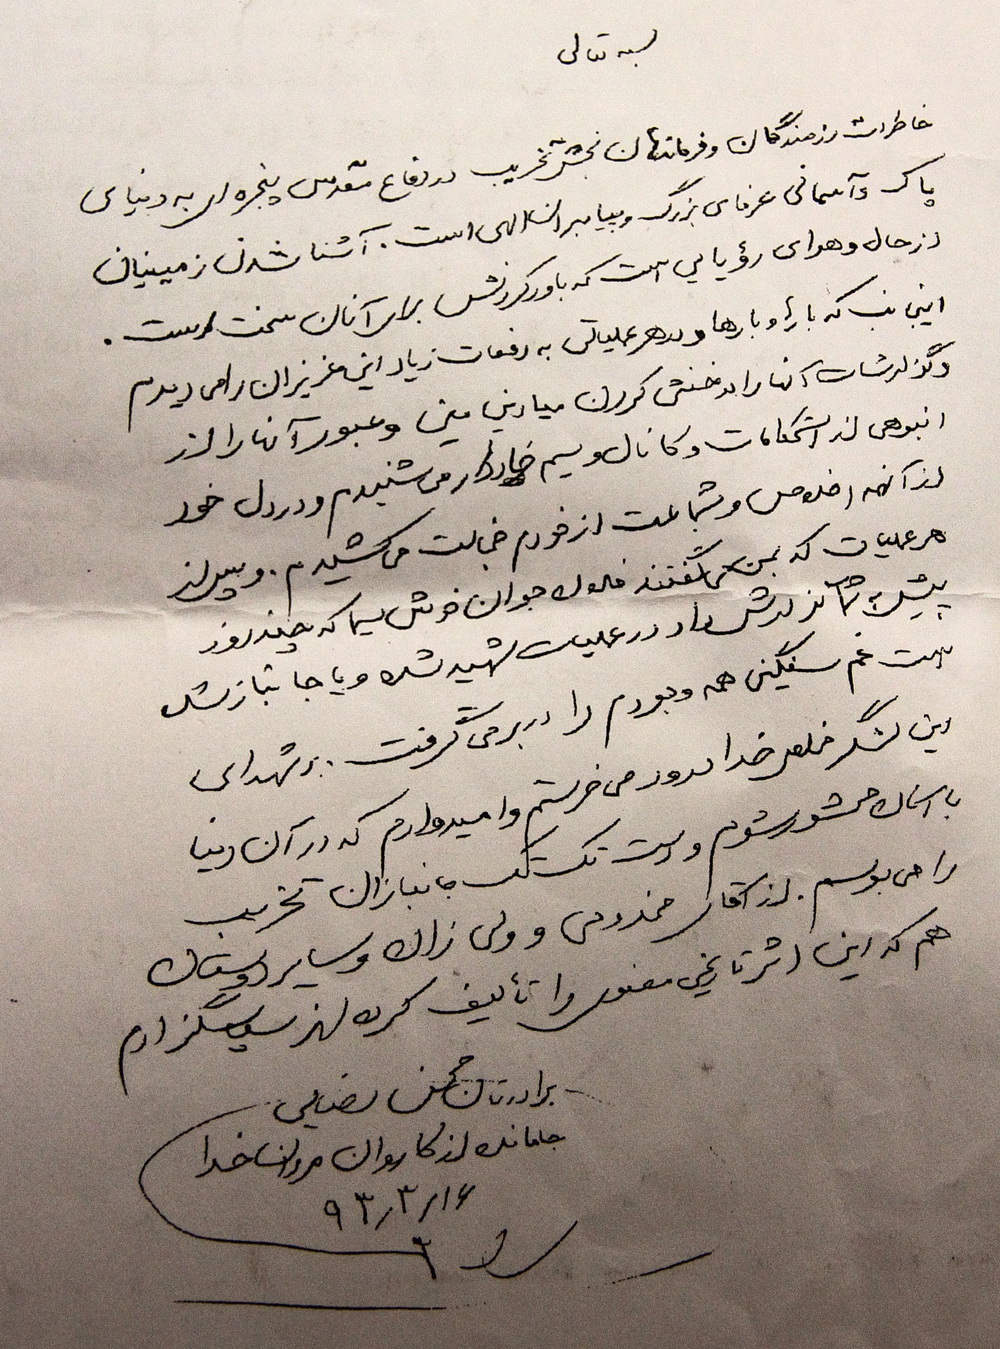 بسمه تعالی
خاطرات رزمندگان و فرماندهان بخش تخریب در دفاع مقدس پنجره ای به دنیای
پاک و آسمانی عرفای بزرگ و پیامبران الهی است. آشنا شدن زمینیان
از حال و هوای رؤیایی است که باور کردنش برای آنان سخت است.
اینجانب که بارها و بارها و در هر عملیاتی به دفعات زیاد این عزیزان را می دیدم
و گزارشات آنها را در خنثی کردن میادین مین و عبور آنها را از
انبوهی از استحکامات و کانال و سیم خاردار می شنیدم و در دل خود
از آنهمه اخلاص و شجاعت از خودم خجالت می کشیدم. و پس از
هر عملیات که بمن می گفتند فلان جوان خوش سیما که چند روز
پیش به شما گزارش داد در عملیات شهید شده و یا جانباز شده
است غم سنگینی همه وجودم را در بر می گرفت. بر شهدای
این لشگر مخلص خدا درود می فرستم و امیدوارم که در آن دنیا
با آنان محشور شوم و دست تک تک جانبازان تخریب
را می بوسم. از آقای مخدومی و ولی زاده و سایر دوستان
هم که این اثر تاریخی معنوی را تألیف کرده اند سپاسگزارم
برادرتان محسن رضایی
جامانده از کاروان مردان خدا
۹۳/۳/۱۶